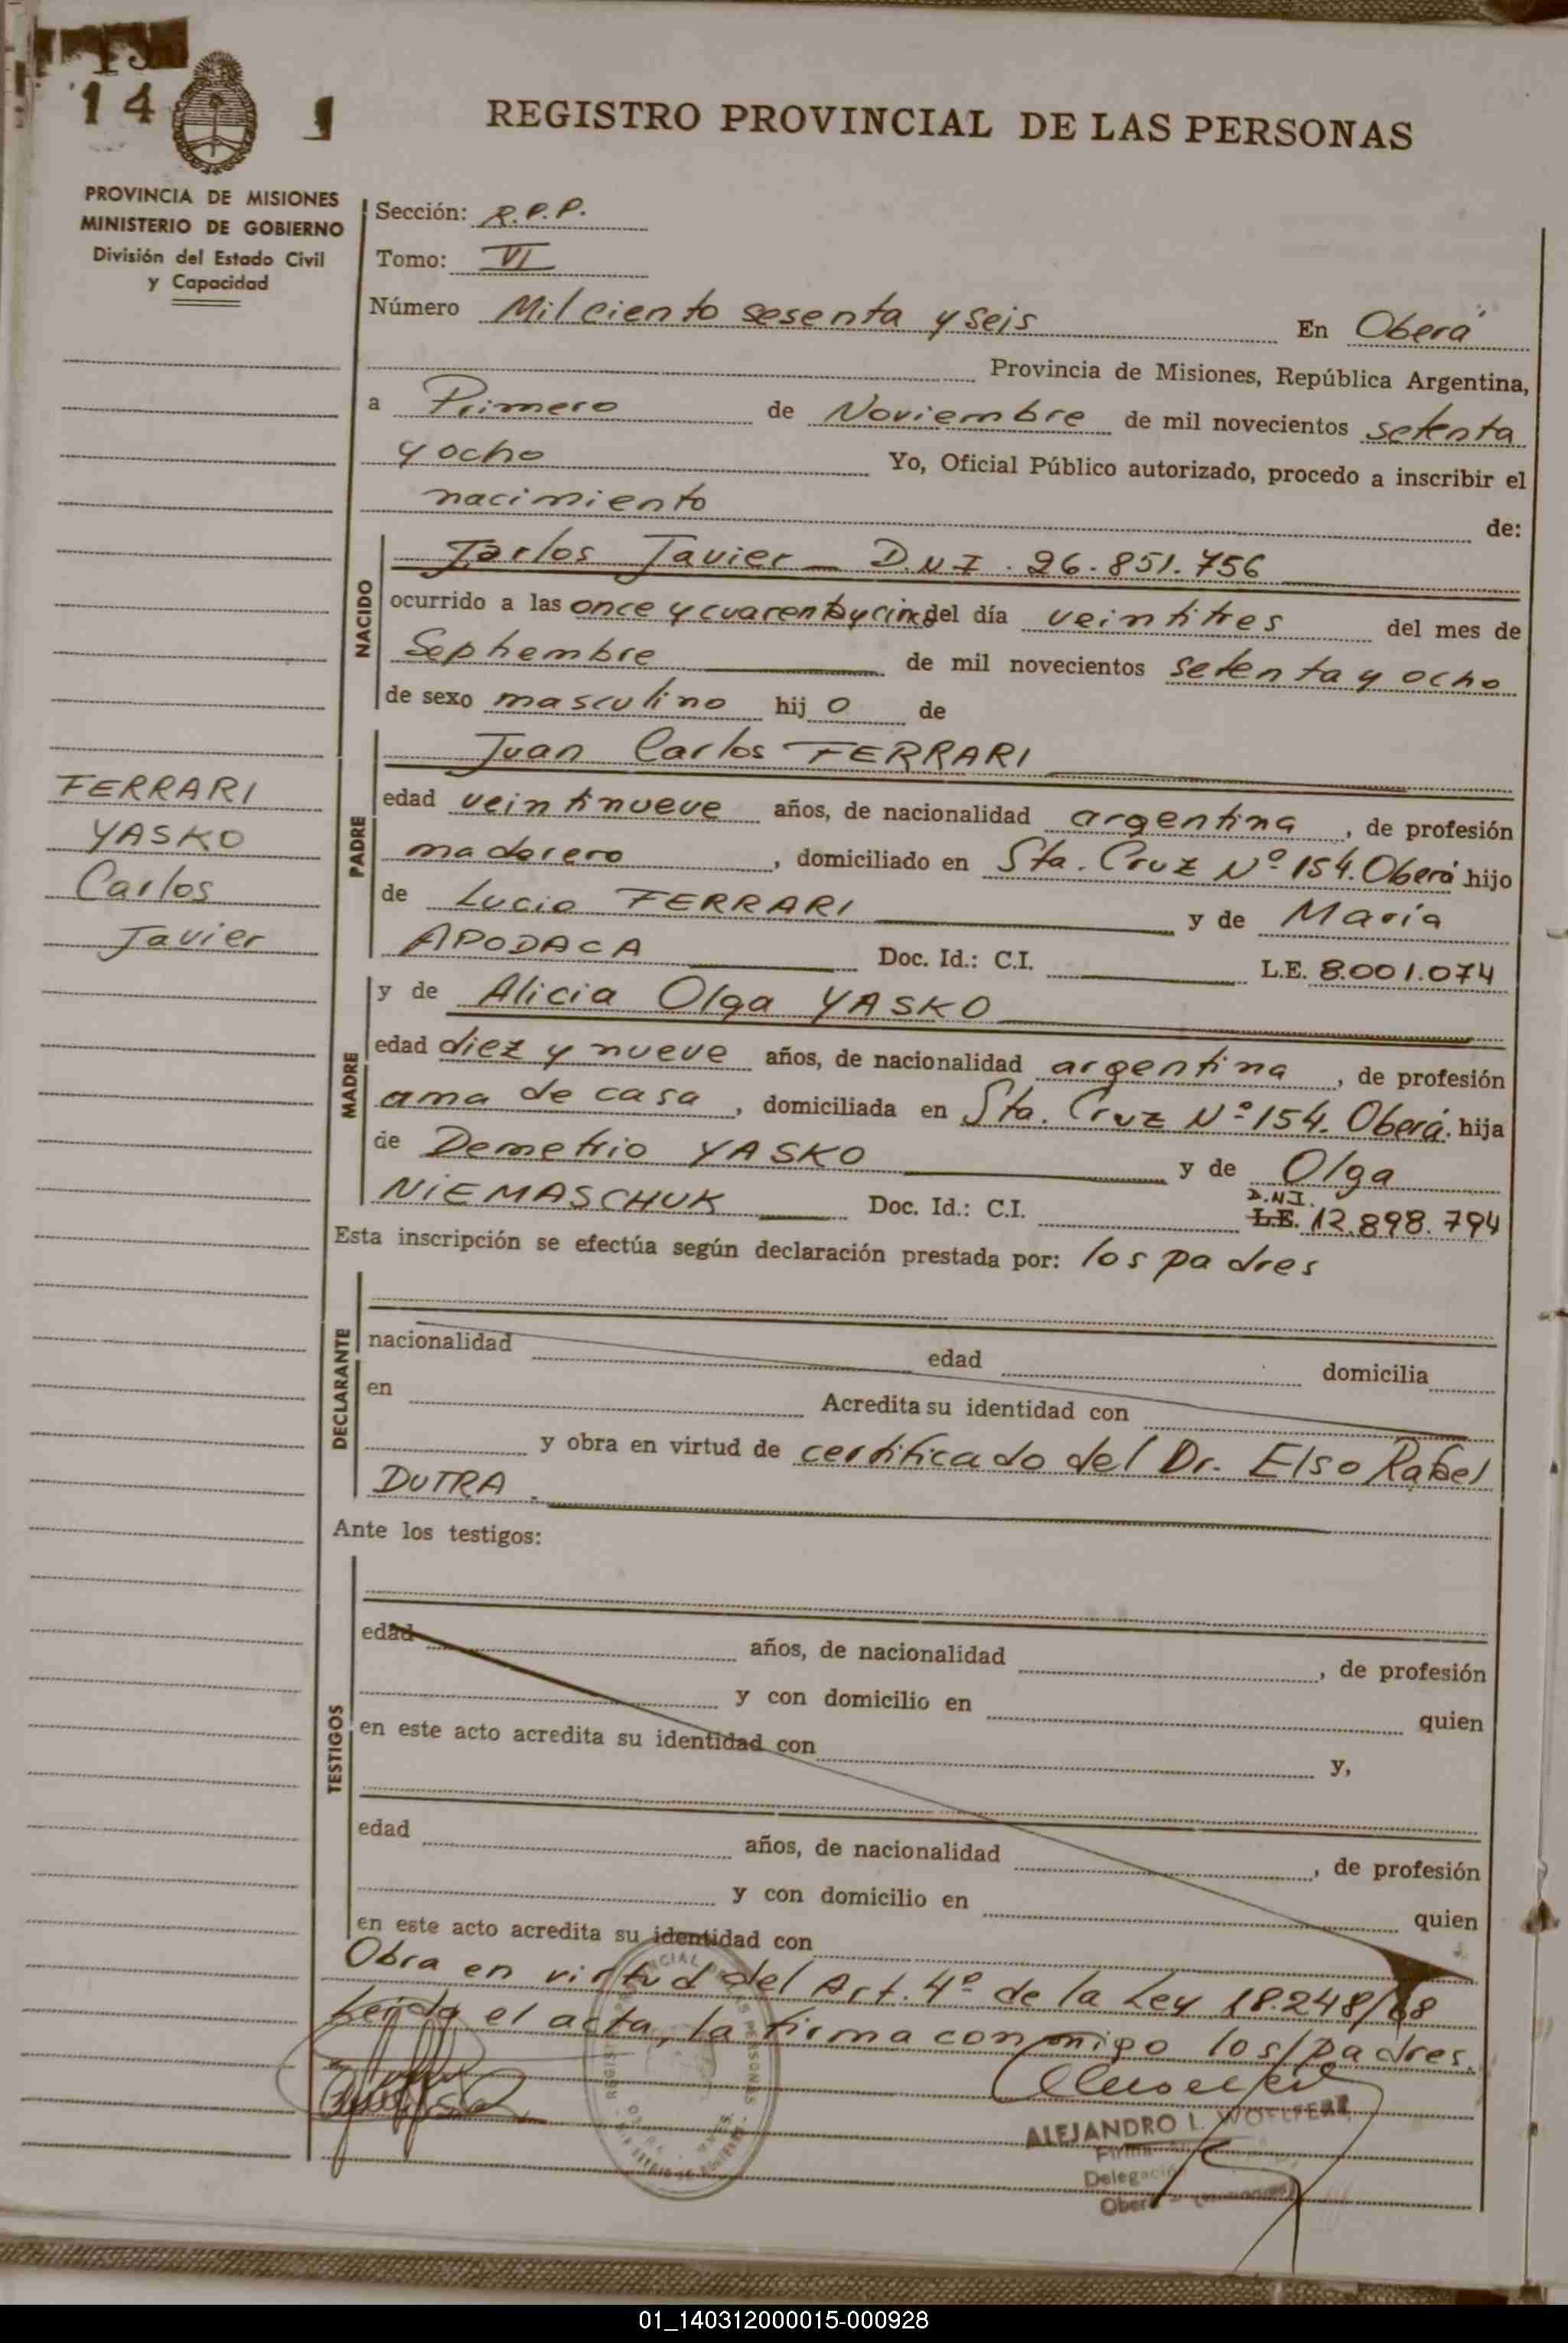 14
1
REGISTRO PROVINCIAL DE LAS PERSONAS
PROVINCIA DE MISIONES
MINISTERIO DE GOBIERNO
División del Estado Civil
y Capacidad
Sección: R.P.P.
Tomo: VI
Número Mil ciento sesenta y seis En Oberá
Provincia de Misiones, República Argentina,
a Primero de Noviembre de mil novecientos setenta
y ocho Yo, Oficial Público autorizado, procedo a inscribir el
nacimiento de:
NACIDO
Carlos Javier — D.N.I. 26.851.756
ocurrido a las once y cuarenta y cinco del día veintitres del mes de
Septiembre de mil novecientos setenta y ocho
de sexo masculino hijo de
PADRE
Juan Carlos FERRARI
edad veintinueve años, de nacionalidad argentina, de profesión
maderero, domiciliado en Sta. Cruz Nº 154. Oberá hijo
de Lucio FERRARI y de María
APODACA Doc. Id.: C.I. L.E. 8.001.074
FERRARI
YASKO
Carlos
Javier
MADRE
y de Alicia Olga YASKO
edad diez y nueve años, de nacionalidad argentina, de profesión
ama de casa, domiciliada en Sta. Cruz Nº 154. Oberá. hija
de Demetrio YASKO y de Olga
NIEMASCHUK Doc. Id.: C.I. D.N.I. L.E. 12.898.794
Esta inscripción se efectúa según declaración prestada por: los padres
DECLARANTE
nacionalidad edad domicilia
en Acredita su identidad con
y obra en virtud de certificado del Dr. Elso Rafael
DUTRA.
Ante los testigos:
TESTIGOS
edad años, de nacionalidad , de profesión
y con domicilio en quien
en este acto acredita su identidad con y,
edad años, de nacionalidad , de profesión
y con domicilio en quien
en este acto acredita su identidad con
Obra en virtud del Art. 4º de la Ley 18.248/68
Leida el acta, la firma conmigo los/padres.
ALEJANDRO I.
Firma
Delegación
Oberá - (Misiones)
01_140312000015-000928